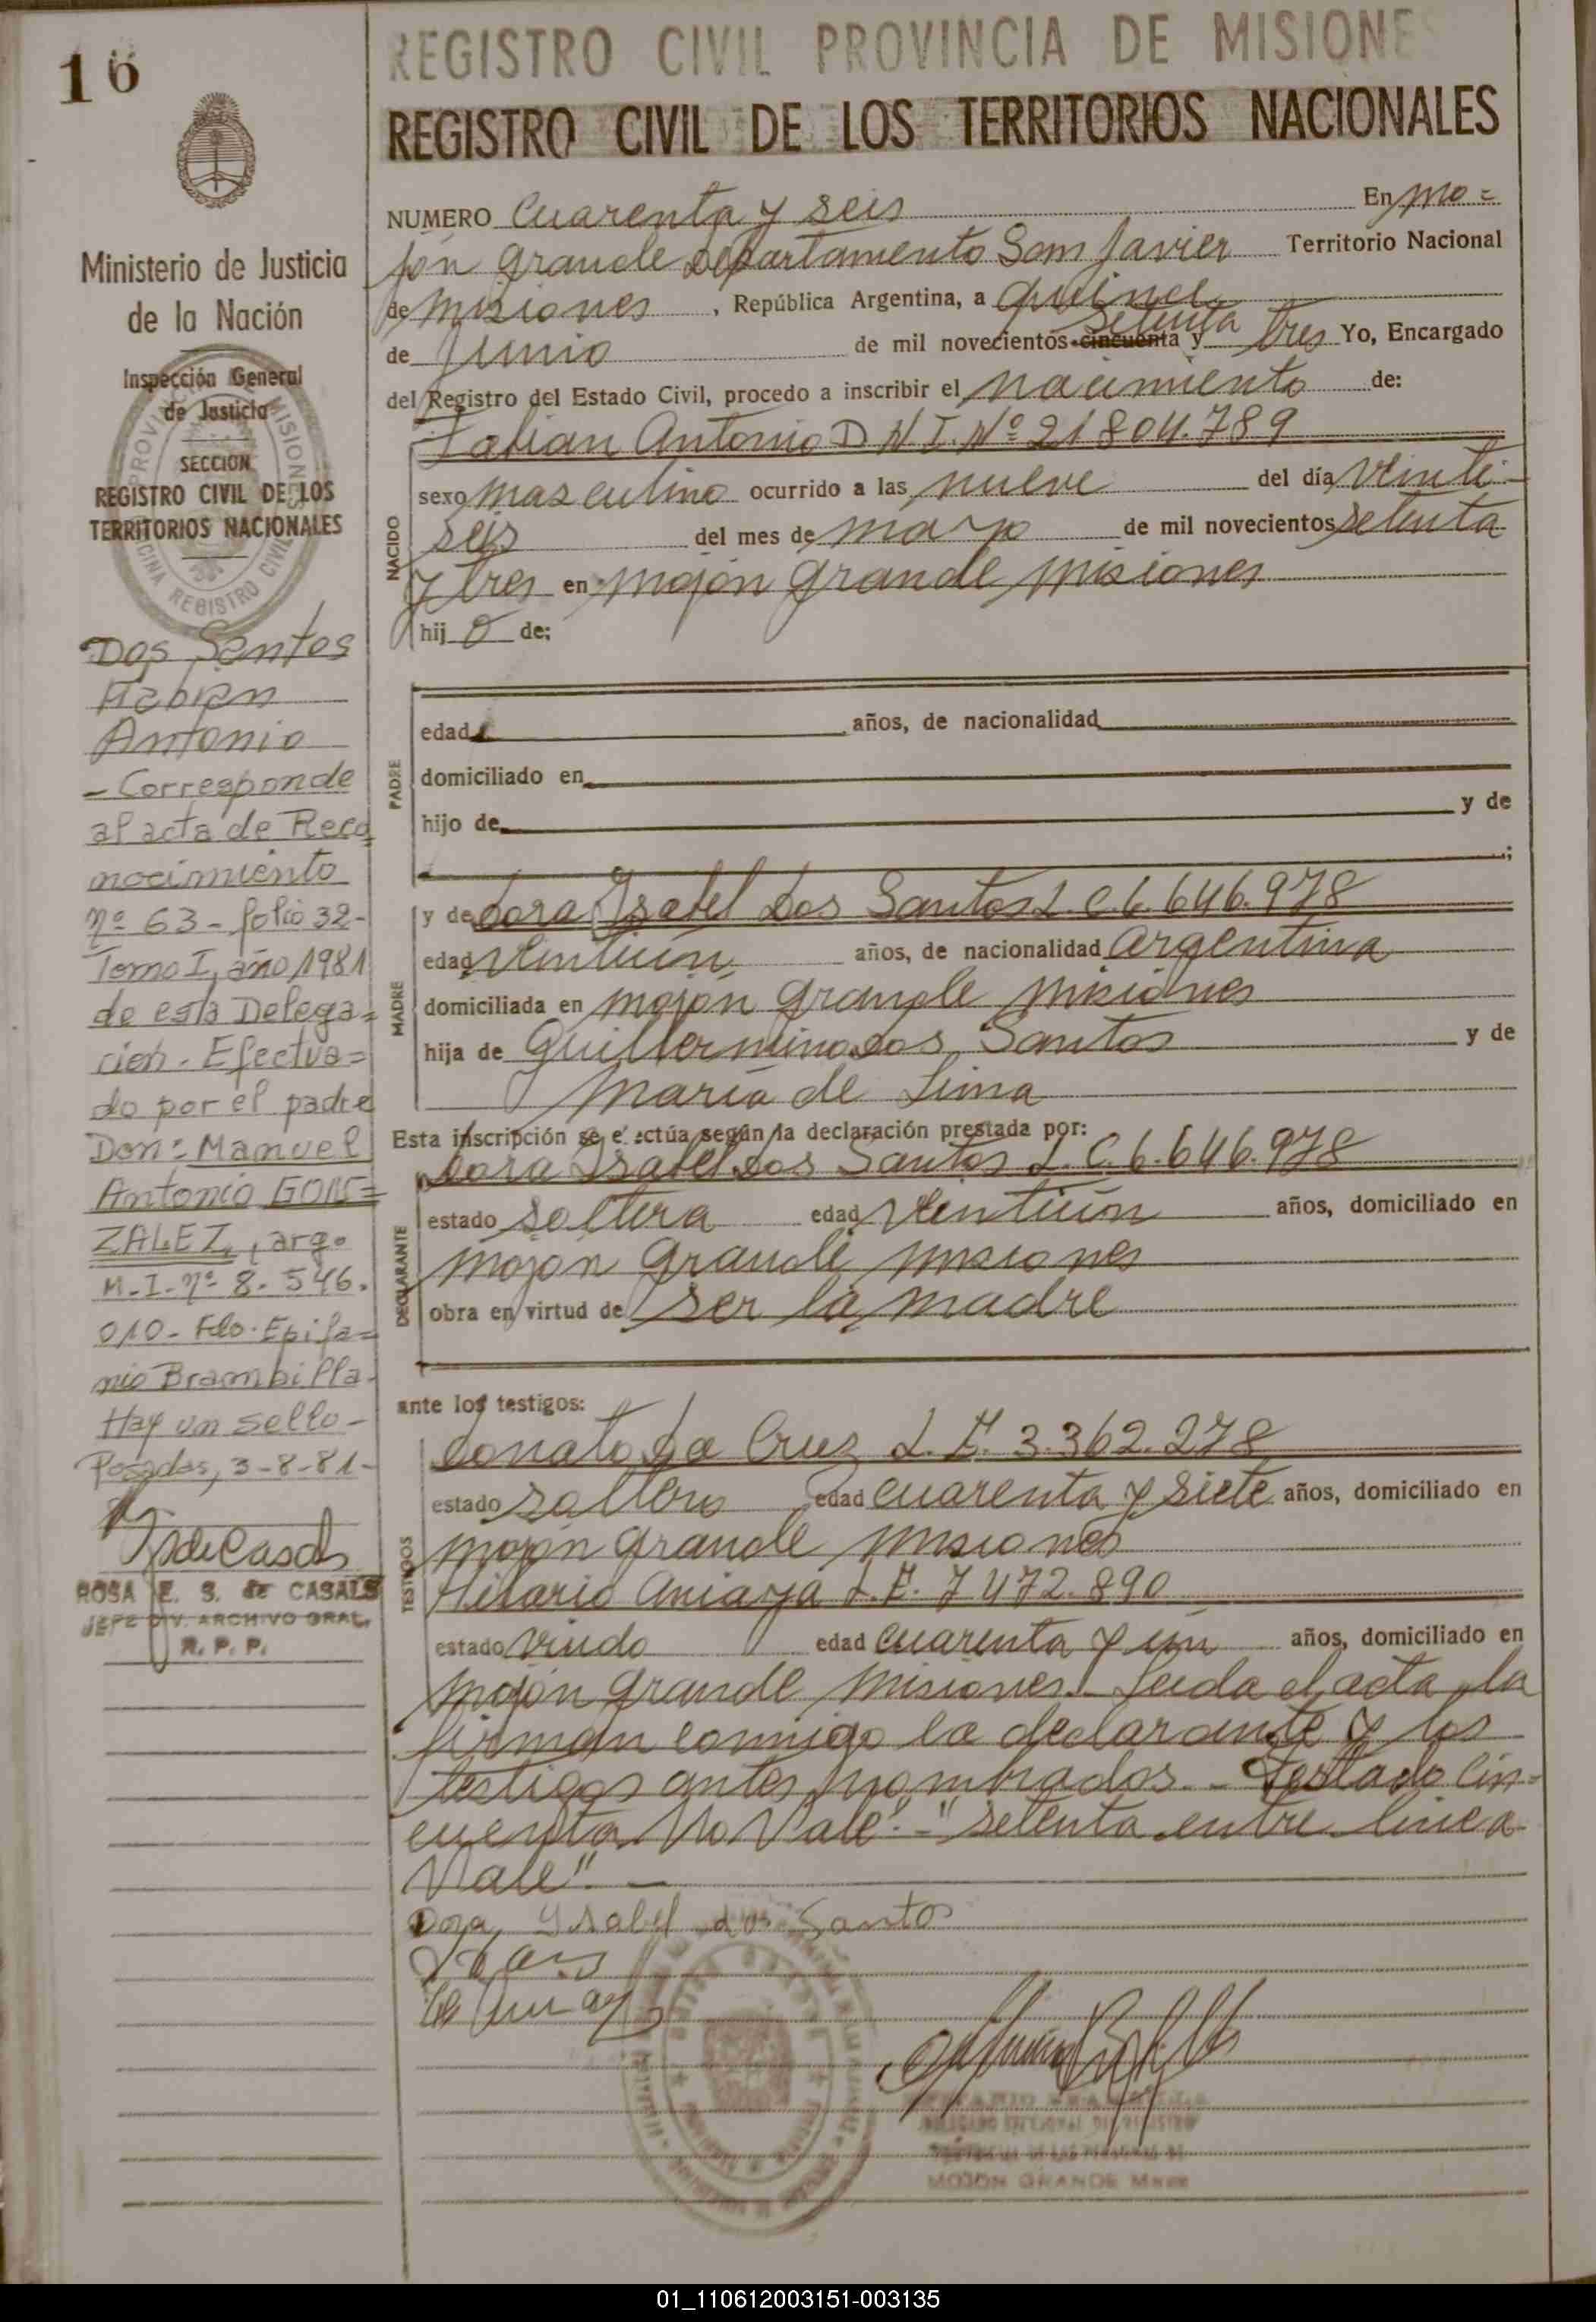 16
Ministerio de Justicia
de la Nación
Inspección General
de Justicia
SECCION
REGISTRO CIVIL DE LOS
TERRITORIOS NACIONALES
PROVINCIA MISIONES
OFICINA REGISTRO CIVIL
Dos Santos
Fabian
Antonio
- Corresponde
al acta de Reco
nocimiento
nº 63 - folio 32 -
Tomo I, año 1981
de esta Delega=
ción. Efectua=
do por el padre
Don: Manuel
Antonio GON=
ZALEZ, arg.
M.I. nº 8.546.
010 - Fdo. Epifa=
nio Brambilla.
Hay un sello -
Posadas, 3-8-81 -
ROSA E. S. de CASALS
JEFE DIV. ARCHIVO GRAL.
R. P. P.
REGISTRO CIVIL PROVINCIA DE MISIONES
REGISTRO CIVIL DE LOS TERRITORIOS NACIONALES
NUMERO Cuarenta y seis En Mo=
jón grande Departamento San Javier Territorio Nacional
de Misiones, República Argentina, a quince
setenta
de Junio de mil novecientos cincuenta y tres Yo, Encargado
del Registro del Estado Civil, procedo a inscribir el nacimiento de:
Fabian Antonio D.N.I. Nº 21804.789
NACIDO
sexo masculino ocurrido a las nueve del día venti-
seis del mes de mayo de mil novecientos setenta
y tres en mojón grande misiones
hij o de:
PADRE
edad años, de nacionalidad
domiciliado en
hijo de y de
;
MADRE
y de Dora Isabel Dos Santos L.C. 6.646.978
edad ventiún años, de nacionalidad argentina
domiciliada en mojón grande misiones
hija de Guillermino Dos Santos y de
Maria de Lima
Esta inscripción se efectúa según la declaración prestada por:
DECLARANTE
Dora Isabel Dos Santos L.C. 6.646.978
estado soltera edad ventiún años, domiciliado en
mojon grande misiones
obra en virtud de ser la madre
ante los testigos:
TESTIGOS
Donato Da Cruz L.E. 3.362.278
estado soltero edad cuarenta y siete años, domiciliado en
mojón grande misiones
Hilario L.E. 7472.890
estado viudo edad cuarenta y un años, domiciliado en
mojón grande misiones. Leida el acta la
firman conmigo la declarante y los
testigos antes nombrados. - Testado cin=
cuenta No Vale". - "setenta entre linea
Vale". -
Dora Ysabel dos Santos
DELEGADO SECCIONAL DEL REGISTRO
PROVINCIAL DE LAS PERSONAS DE
MOJON GRANDE Mnes
01_110612003151-003135